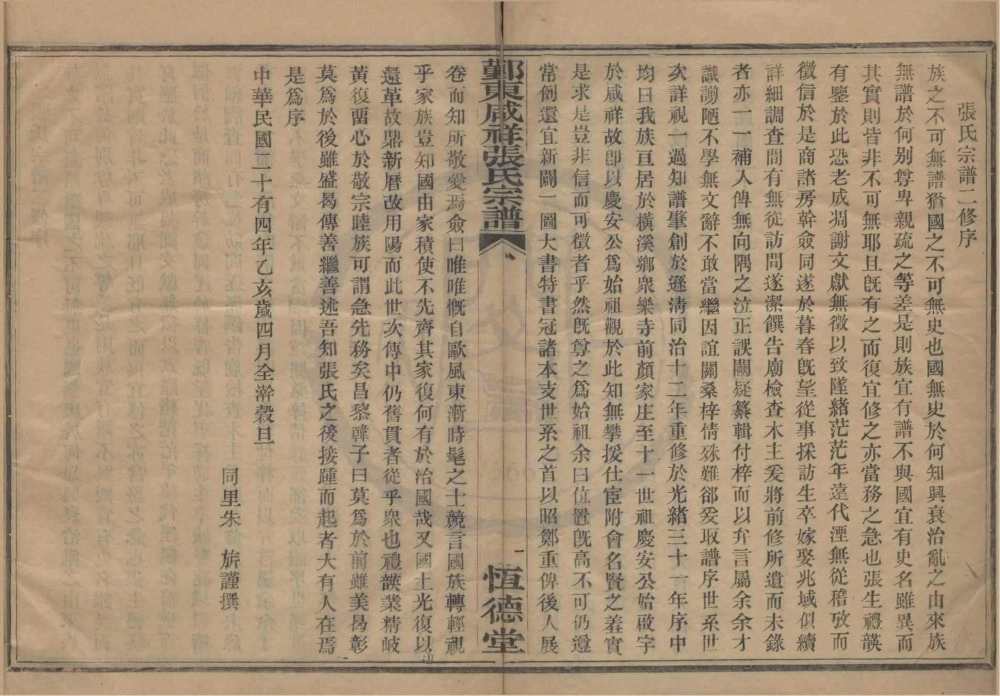 張氏宗譜二修序
族之不可無譜猶國之不可無史也國無史於何知興衰治亂之由來族
無譜於何别尊卑親疏之等差是則族宜有譜不與國宜有史名雖異而
其實則皆非不可無耶且既有之而復宜修之亦當務之急也張生禮韺
有鑒於此恐老成凋謝文獻無徵以致墜緒茫茫年遠代湮無從稽攷而
徵信於是商諸房幹僉同遂於暮春既望從事採訪生卒嫁娶兆域似續
詳細調查間有無從訪問遂潔饌告廟檢查木主爰將前修所遺而未錄
者亦一一補入俾無向隅之泣正誤闕疑纂輯付梓而以弁言屬余余才
識謭陋不學無文辭不敢當繼因誼關桑梓情殊難卻爰取譜序世系世
次詳視一過知譜肇創於遜清同治十二年重修於光緒三十一年序中
均曰我族亘居於橫溪鄉衆樂寺前顏家庄至十一世祖慶安公始啟宇
於咸祥故即以慶安公爲始祖觀於此知無攀援仕宦附會名賢之羞實
是求是豈非信而可徵者乎然既尊之爲始祖余曰位置既高不可仍遵
常例還宜新闢一圖大書特書冠諸本支世系之首以昭鄭重俾後人展
鄞東咸祥張氏宗譜
一
恆德堂
卷而知所敬愛焉僉曰唯唯慨自歐風東漸時髦之士競言國族轉輕視
乎家族豈知國由家積使不先齊其家復何有於治國哉又國土光復以
還革故鼎新曆改用陽而此世次傳中仍舊貫者從乎衆也禮韺業精岐
黃復留心於敬宗睦族可謂急先務矣昌黎韓子曰莫爲於前雖美曷彰
莫爲於後雖盛曷傳善繼善述吾知張氏之後接踵而起者大有人在焉
是爲序
中華民國二十有四年乙亥歲四月全澣穀旦
同里朱 旂謹撰